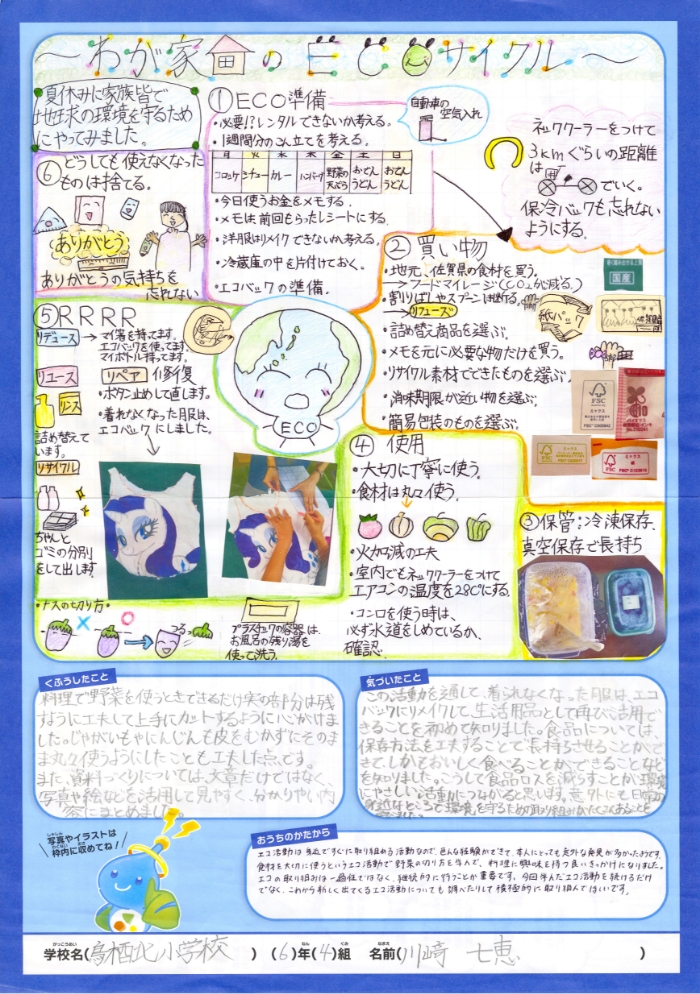 ～わが家の ECO サイクル～
夏休みに家族皆で
地球の環境を守るため
にやってみました。
①ECO準備
・必要!?レンタルできないか考える。
・1週間分のこん立てを考える。
月 火 水 木 金 土 日
コロッケ シチュー カレー ハンバーグ 野菜の天ぷら おでんうどん おでんうどん
・今日使うお金をメモする.
・メモは前回もらったレシートにする.
・洋服はリメイクできないか考える.
・冷蔵庫の中を片付けておく.
・エコバックの準備.
自動車の
空気入れ
ネッククーラーをつけて
3kmぐらいの距離
は
でいく。
保冷バックも忘れない
ようにする.
②買い物
・地元、佐賀県の食材を買う.
→フードマイレージ(CO₂が減る.)
・割りばしやスプーンは断る.
→リフューズ
・詰め替え商品を選ぶ.
・メモを元に必要な物だけを買う.
・リサイクル素材でできたものを選ぶ.
・消味期限が近い物を選ぶ.
・簡易包装のものを選ぶ.
国産
紙パック
FSC
ミックス
FSC
ミックス
FSC
ミックス
③保管:冷凍保存、
真空保存で長持ち
④使用
・大切に丁寧に使う.
・食材は丸々使う.
・火力減の工夫
・室内でもネッククーラーをつけて
エアコンの温度を29℃にする.
・コンロを使う時は、
必ず水道をしめているか、
確認.
⑤RRRR
リデュース→マイ箸を持ってます。
エコバックを使ってます
マイボトル持ってます.
リユース
リンス
詰め替えて
います。
リペア 修復
・ボタン止めして直します.
・着れなくなった服は、
エコバックにしました.
リサイクル
ちゃんと
ゴミの分別
をして出します.
・ナスの切り方・
つるっ
プラスチックの容器は、
お風呂の残り湯を
使って洗う.
⑥どうしても使えなくなった
ものは捨てる.
ありがとう
ありがとうの気持ちを
忘れない
ECO
くふうしたこと
料理で野菜を使うときできるだけ実の部分は残
すように工夫して上手にカットするように心がけま
した。じゃがいもやにんじんも皮をむかずにそのま
ま丸々使うようにしたことも工夫した点です。
また、資料づくりについては、文章だけではなく、
写真や絵などを活用して見やすく、分かりやすい内
容にまとめました
気づいたこと
この活動を通して、着られなくなった服は、エコ
バックにリメイクして、生活用品として再び活用で
きることを初めて知りました。食品については、
保存方法を工夫することで長持ちさせることができ
て、しかもおいしく食べることができることなど
を知りました。こうして食品ロスを減らすことが、環境
にやさしい活動につながると思います。意外にも日常の
身近なところで環境を守るための取り組みがたくさんあることを
おうちのかたから
エコ活動は身近ですぐに取り組める活動なので、色んな経験ができて、本人にとっても意外な発見が多かったようです。
食材を大切に使うというエコ活動で野菜の切り方を学んで、料理に興味を持つ良いきっかけになりました。
エコの取り組みは一過性ではなく、継続的に行うことが重要です。今回学んだエコ活動を続けるだけ
でなく、これから新しく出てくるエコ活動についても調べたりして積極的に取り組んでほしいです。
写真やイラストは
枠内に収めてね!
学校名(鳥栖北小学校) (6)年(4)組 名前(川﨑 七恵)